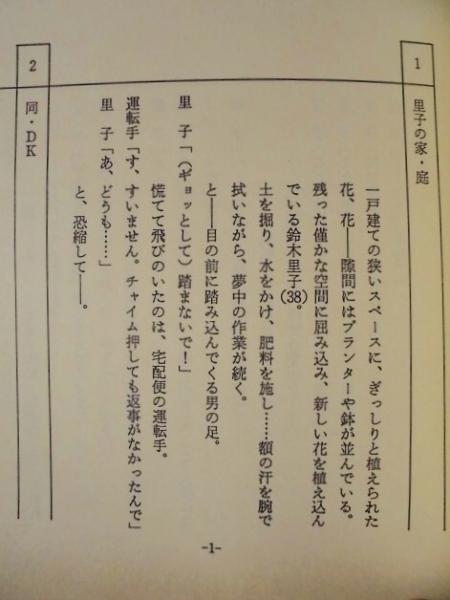 1 里子の家・庭
一戸建ての狭いスペースに、ぎっしりと植えられた
花、花――隙間にはプランターや鉢が並んでいる。
残った僅かな空間に屈み込み、新しい花を植え込ん
でいる鈴木里子(38)。
土を掘り、水をかけ、肥料を施し……額の汗を腕で
拭いながら、夢中の作業が続く。
と――目の前に踏み込んでくる男の足。
里 子「(ギョッとして)踏まないで!」
慌てて飛びのいたのは、宅配便の運転手。
運転手「す、すいません。チャイム押しても返事がなかったんで」
里 子「あ、どうも……」
と、恐縮して――。
2 同・DK
-1-